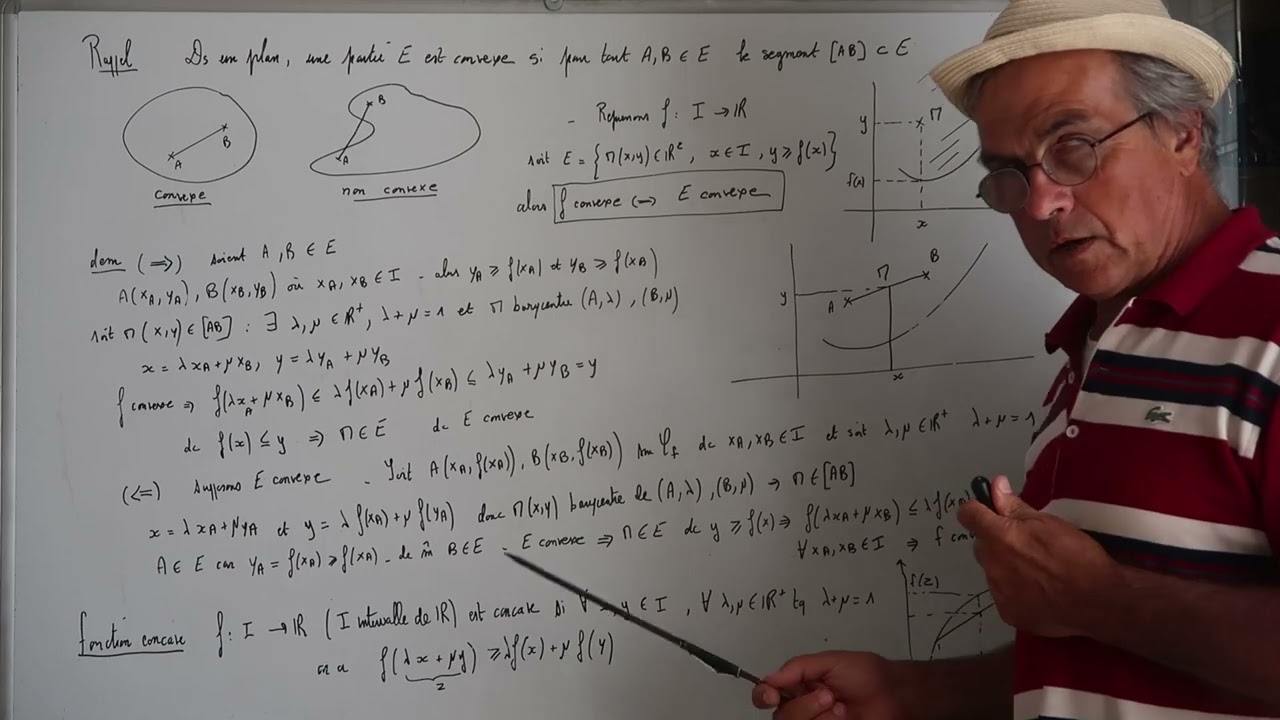 Rappel Ds un plan, une partie E est convexe si pour tout A, B ∈ E le segment [AB] ⊂ E
A B
convexe
A B
non convexe
- Reprenons f: I → IR
soit E = {M(x,y) ∈ IR², x ∈ I, y ⩾ f(x)}
alors f convexe ⟺ E convexe
y M
f(x)
x
dem (⟹) soient A, B ∈ E
A(xA, yA), B(xB, yB) où xA, xB ∈ I - alors yA ⩾ f(xA) et yB ⩾ f(xB)
soit M(x,y) ∈ [AB] : ∃ λ, μ ∈ IR⁺, λ+μ = 1 et M barycentre (A,λ), (B,μ)
x = λxA + μxB, y = λyA + μyB
f convexe ⇒ f(λxA + μxB) ⩽ λf(xA) + μf(xB) ⩽ λyA + μyB = y
dc f(x) ⩽ y ⇒ M ∈ E dc E convexe
y A M B
x
(⟸) supposons E convexe - Soit A(xA, f(xA)), B(xB, f(xB)) sur 𝒞f dc xA, xB ∈ I et soit λ, μ ∈ IR⁺ λ+μ = 1
x = λxA + μyA et y = λf(xA) + μf(yA) donc M(x,y) barycentre de (A,λ), (B,μ) ⇒ M ∈ [AB]
A ∈ E car yA = f(xA) ⩾ f(xA) - de m̂ B ∈ E - E convexe ⇒ M ∈ E dc y ⩾ f(x) ⇒ f(λxA + μxB) ⩽ λf(xA)
∀ xA, xB ∈ I ⇒ f
fonction concave f: I → IR (I intervalle de IR) est concave si ∀ x, y ∈ I, ∀ λ, μ ∈ IR⁺ tq λ+μ = 1
on a f(λx + μy) ⩾ λf(x) + μf(y)
z
f(z)